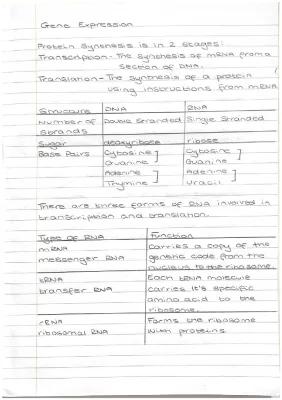 Gene Expression
Protein Synthesis is in 2 stages:
Transcription - The synthesis of mRNA from a
section of DNA.
Translation - The synthesis of a protein
using instructions from mRNA
Structure DNA RNA
Number of Double Stranded Single Stranded
Strands
Sugar deoxyribose ribose
Base Pairs Cytosine ] Cytosine ]
Guanine Guanine
Adenine ] Adenine ]
Thymine Uracil
There are three forms of RNA involved in
transcription and translation.
Type of RNA Function
mRNA Carries a copy of the
messenger RNA genetic code from the
nucleus to the ribosome.
tRNA Each tRNA molecule
transfer RNA carries it's specific
amino acid to the
ribosome.
rRNA Forms the ribosome
ribosomal RNA with proteins